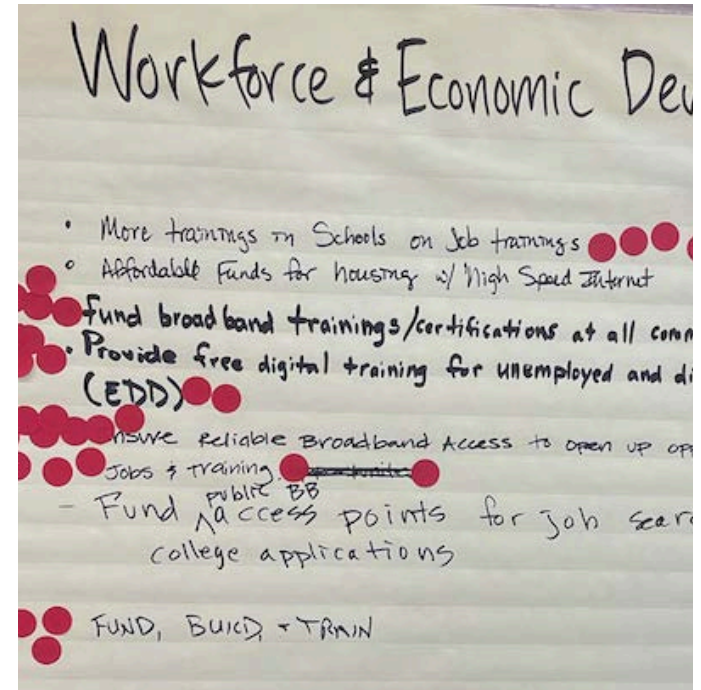 Workforce & Economic Dev
• More trainings in Schools on Job trainings
• Affordable Funds for housing w/ High Speed Internet
fund broadband trainings/certifications at all comm
• Provide free digital training for unemployed and di
(EDD)
nsure Reliable Broadband Access to open up opp
Jobs & training.
public BB
- Fund ^ access points for job sear
college applications
FUND, BUILD, + TRAIN